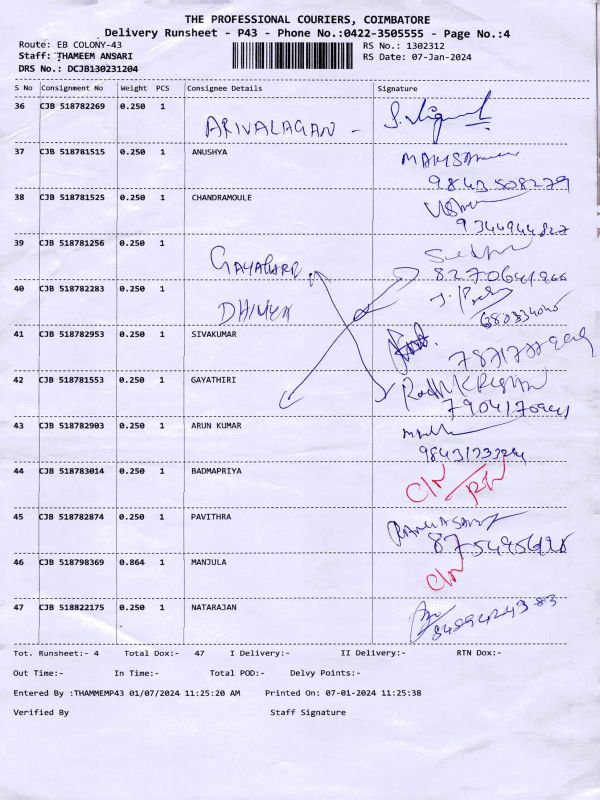 THE PROFESSIONAL COURIERS, COIMBATORE
Delivery Runsheet - P43 - Phone No.:0422-3505555 - Page No.:4
Route: EB COLONY-43 RS No.: 1302312
Staff: THAMEEM ANSARI RS Date: 07-Jan-2024
DRS No.: DCJB130231204
S No Consignment No Weight PCS Consignee Details Signature
36 CJB 518782269 0.250 1
ARIVALAGAN -
37 CJB 518781515 0.250 1 ANUSHYA
9843508279
38 CJB 518781525 0.250 1 CHANDRAMOULE
9344944827
39 CJB 518781256 0.250 1
40 CJB 518782283 0.250 1
41 CJB 518782953 0.250 1 SIVAKUMAR
42 CJB 518781553 0.250 1 GAYATHIRI
43 CJB 518782903 0.250 1 ARUN KUMAR
44 CJB 518783014 0.250 1 BADMAPRIYA
45 CJB 518782874 0.250 1 PAVITHRA
46 CJB 518798369 0.864 1 MANJULA
47 CJB 518822175 0.250 1 NATARAJAN
8489424383
Tot. Runsheet:- 4 Total Dox:- 47 I Delivery:- II Delivery:- RTN Dox:-
Out Time:- In Time:- Total POD:- Delvy Points:-
Entered By :THAMMEMP43 01/07/2024 11:25:20 AM Printed On: 07-01-2024 11:25:38
Verified By Staff Signature